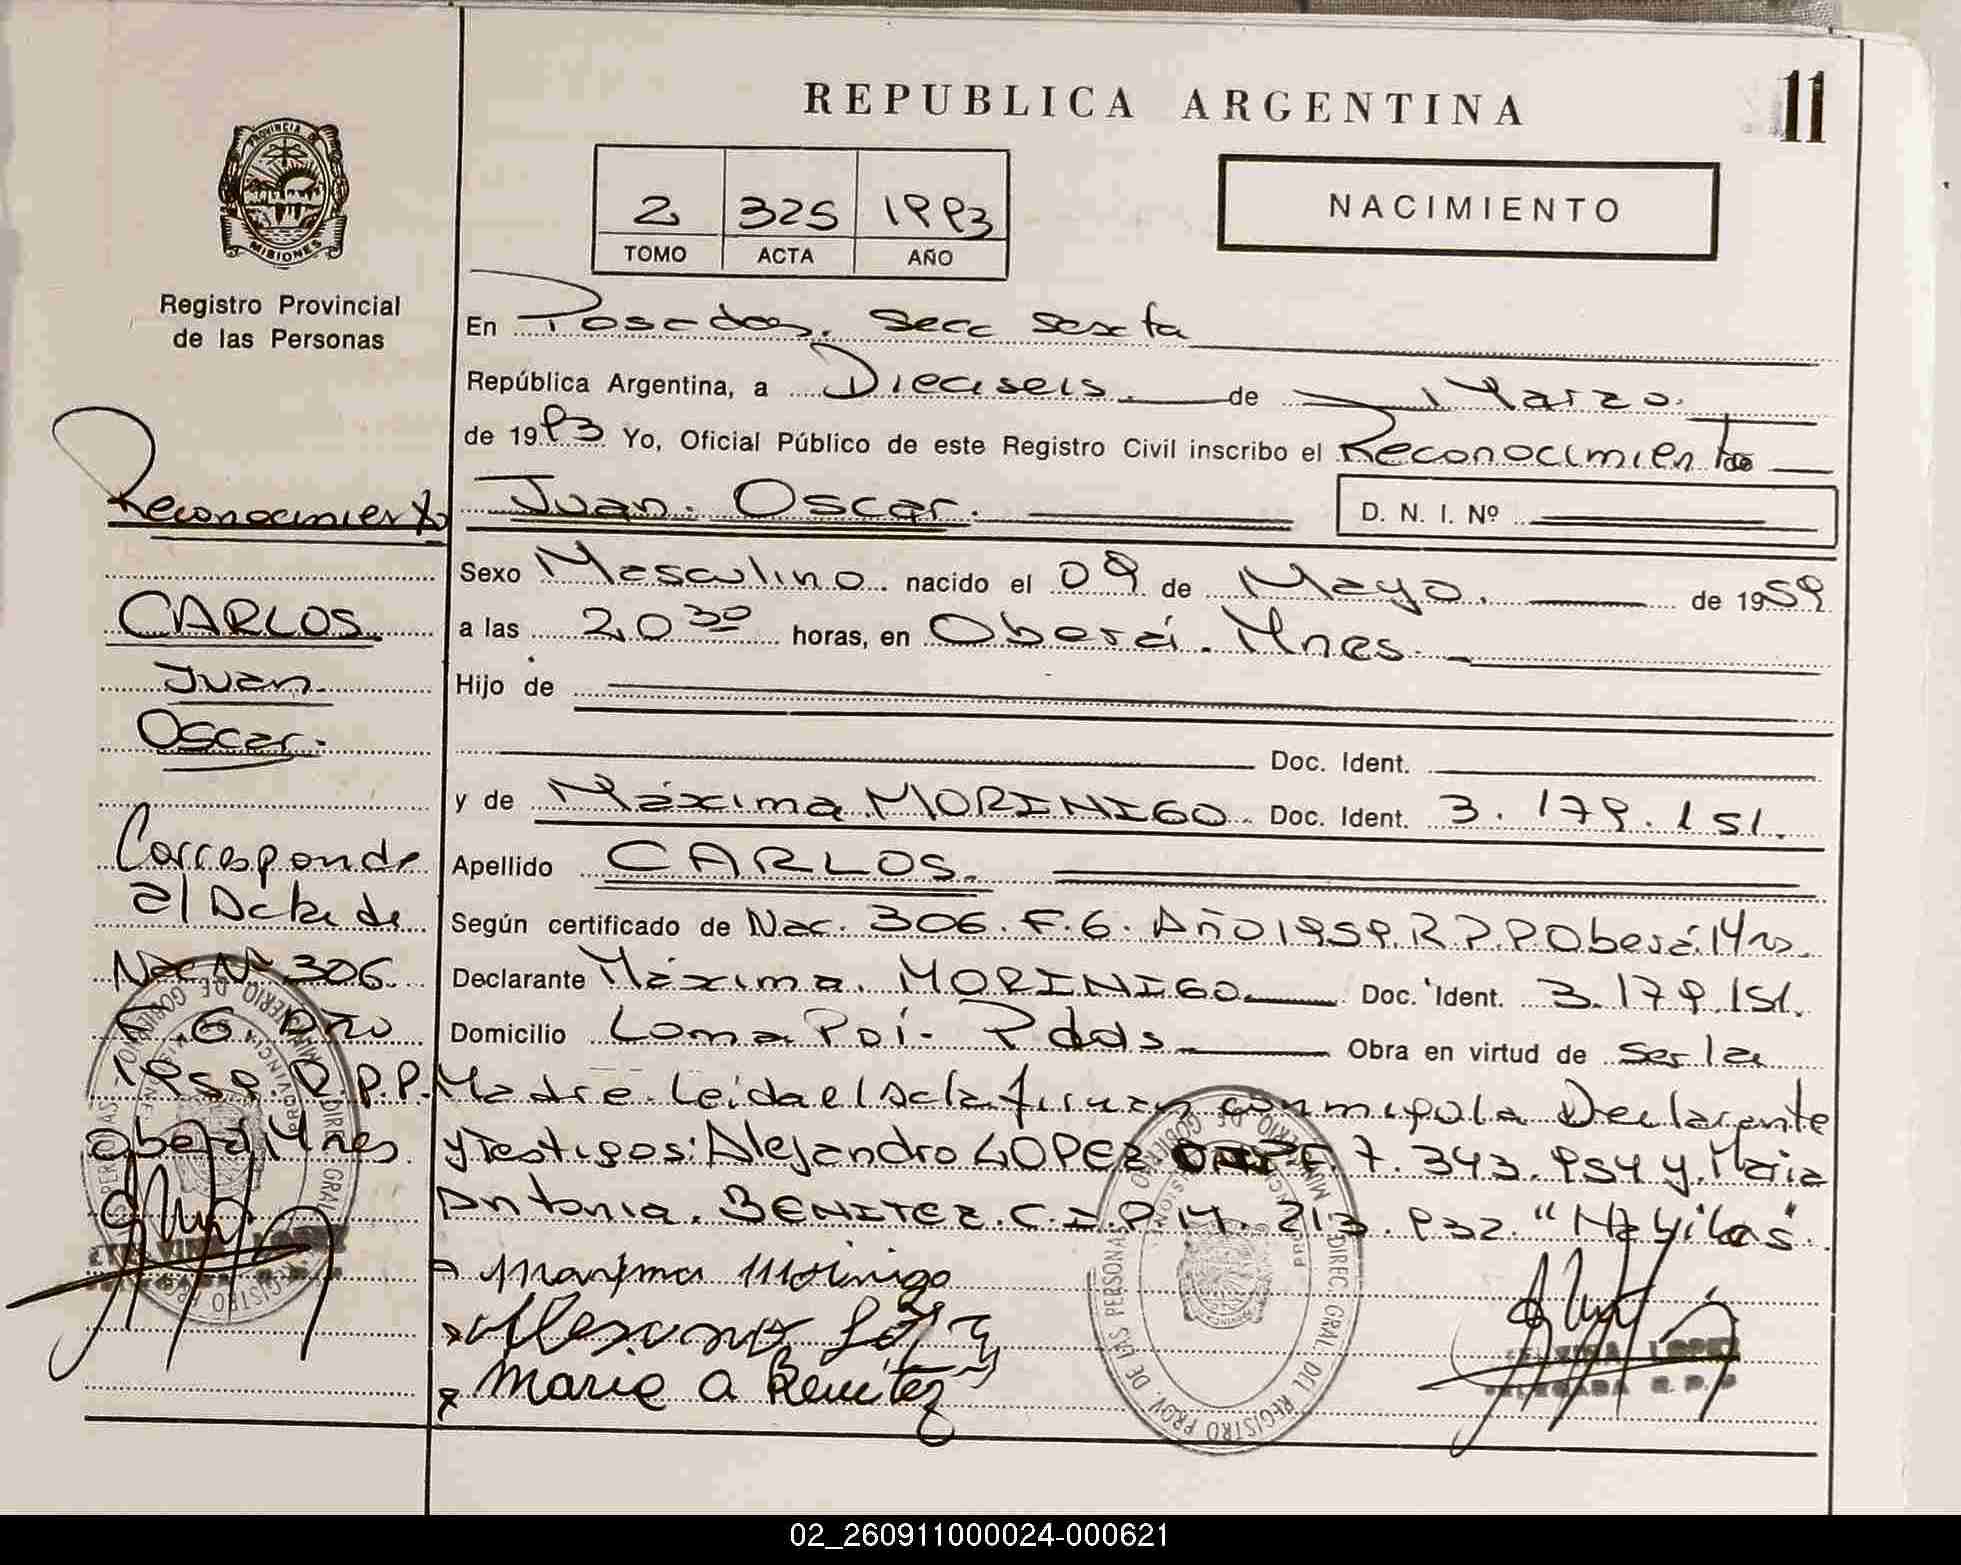 REPUBLICA ARGENTINA
11
2 325 1993
TOMO ACTA AÑO
NACIMIENTO
PROVINCIA DE MISIONES
Registro Provincial
de las Personas
En Posadas. Secc Sexta
República Argentina, a Dieciseis de Marzo.
de 1993 Yo, Oficial Público de este Registro Civil inscribo el Reconocimiento
Juan Oscar. D. N. I. Nº
Sexo Masculino nacido el 09 de Mayo. de 1959
a las 20 30 horas, en Oberá. Mnes.
Hijo de
Doc. Ident.
y de Máxima MORINIGO Doc. Ident. 3.179.151.
Apellido CARLOS.
Según certificado de Nac. 306. F.6. Año 1959. R.P.P. Oberá. Mns.
Declarante Máxima. MORINIGO Doc. Ident. 3.179.151.
Domicilio Loma Poí- Pdas Obra en virtud de ser la
Madre. Leida el Acta firman conmigo la Declarante
y Testigos: Alejandro LOPEZ 7.343.954 y Maria
Antonia. BENITEZ. C.I. 213.932. "
Maxima Morinigo
Lopez
Maria a Benitez
Reconocimiento
CARLOS.
Juan
Oscar.
Corresponde
al Acta de
Nac Nº 306
F. 6. Año
1959. R.P.P.
Oberá Mnes.
LOPEZ
LOPEZ
DELEGADA R.P.P
MINISTERIO DE GOBIERNO
DIREC. GRAL. DEL REGISTRO PROV. DE LAS PERSONAS
MINISTERIO DE GOBIERNO
DIREC. GRAL. DEL REGISTRO PROV. DE LAS PERSONAS
02_260911000024-000621